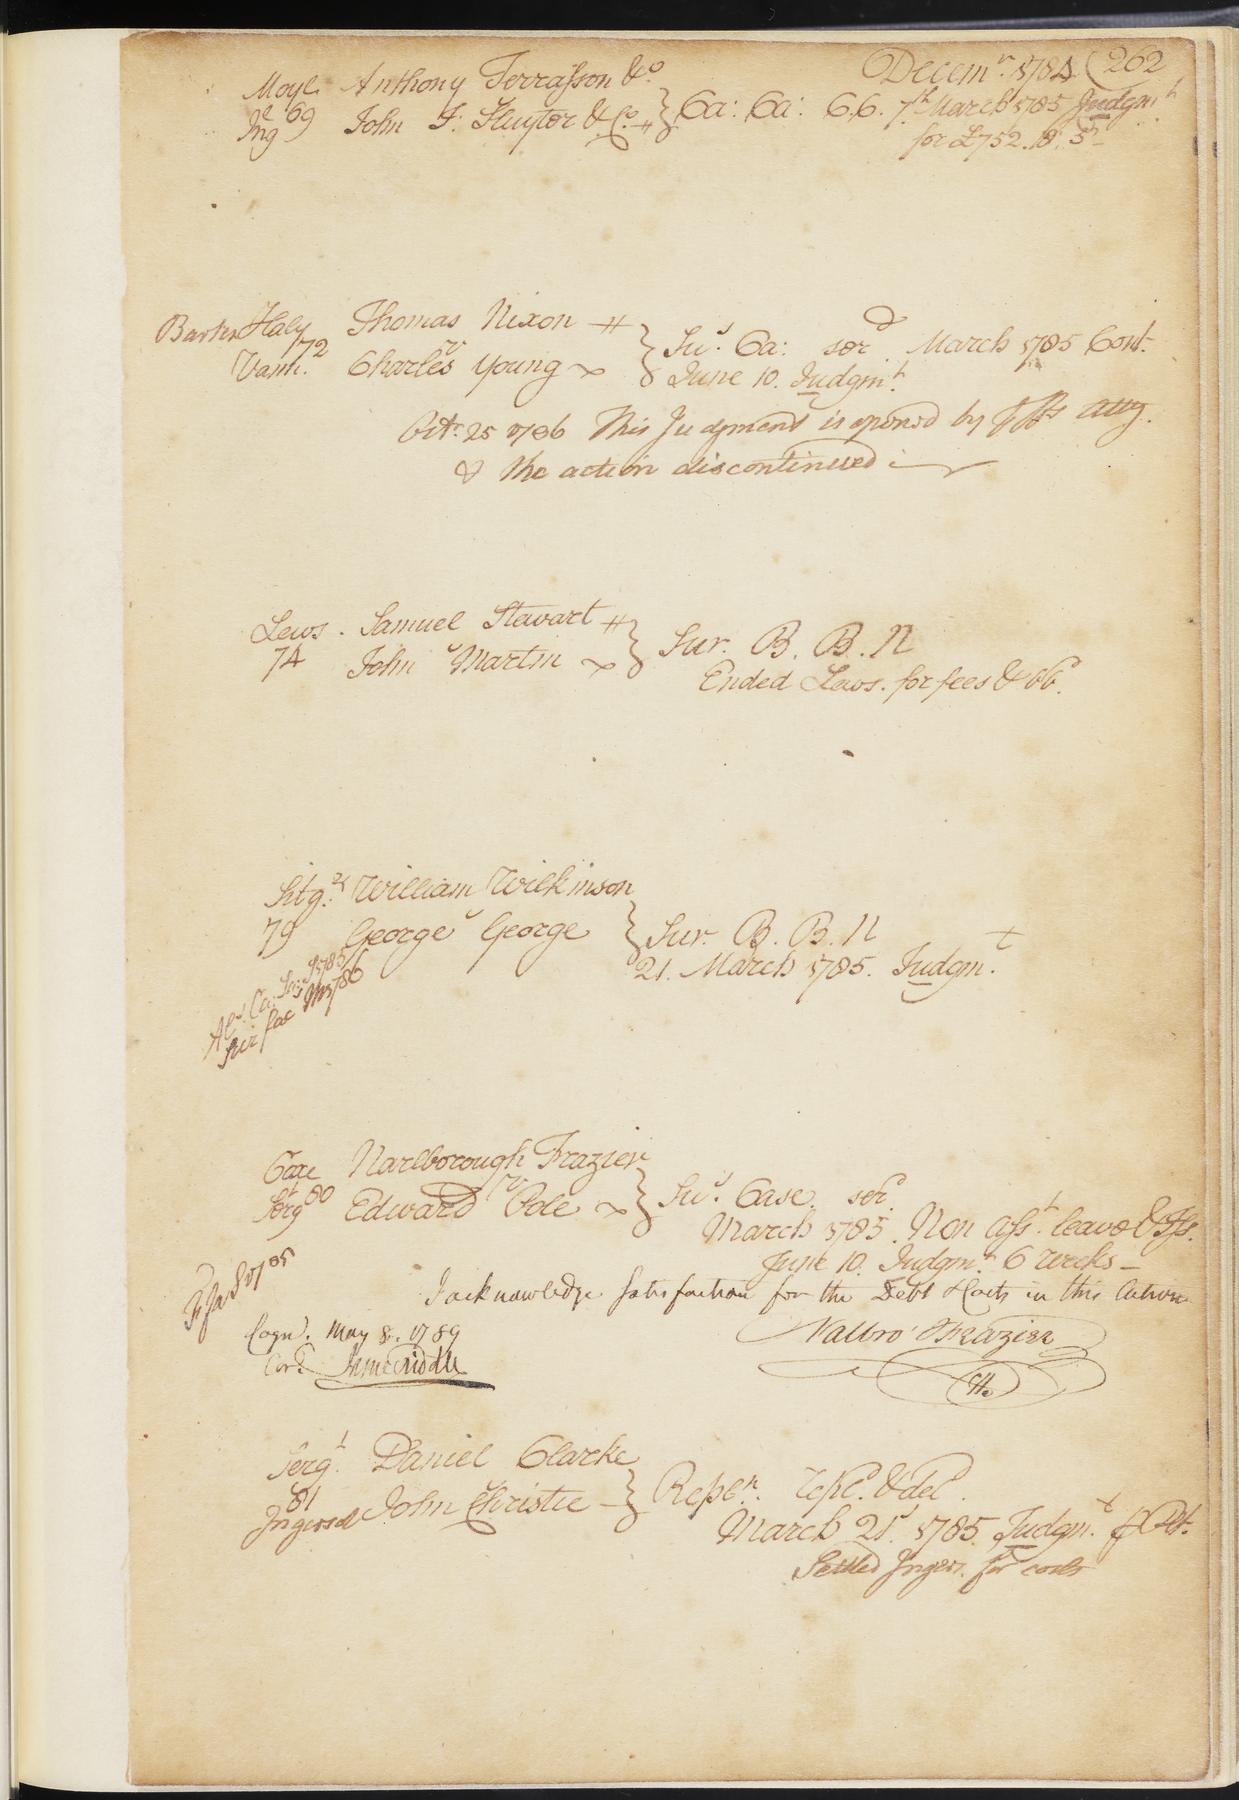 Decemr. 1784 (262
Moyl. Anthony Terrasson & Co.
69
Ing John F. Sluyter & Co. } Ca: Ca: C.C. 7th March 1785 Judgmt
for £752. 18. 5
Barker Haly Thomas Nixon
72
Vann. v Charles Young } Sus. Ca: ser. March 1785 Cont.
June 10. Judgmt.
Octr. 25 1786 This Judgment is opened by Plfs Atty.
& the action discontinued
Lews. Samuel Stewart
74 v John Martin } Sur. B. B. N
Ended Lews. for fees & bb.
Sitgr. William Wilkinson
79 v George George } Sur. B. B. N
21. March 1785. Judgmt.
Als. Ca. Sa. S 1785
Sci fac M 1786
Coxe Narlborough Frazier
80
Sergt v Edward Pole } Sus. Case. ser.
March 1785. Non Asst. leave & Iss.
June 10. Judgmt. 6 weeks
Fi fa S 1785
I acknowledge Satisfaction for the Debt & Costs in this Action
Cogn. May 8. 1789 Nalbro' Frazier
Cor.
Sergt. Daniel Clarke
81
Ingersol v John Christie } Replen. repld. & deld.
March 21st. 1785. Judgmt. p Plt.
Settled Ingers. for costs